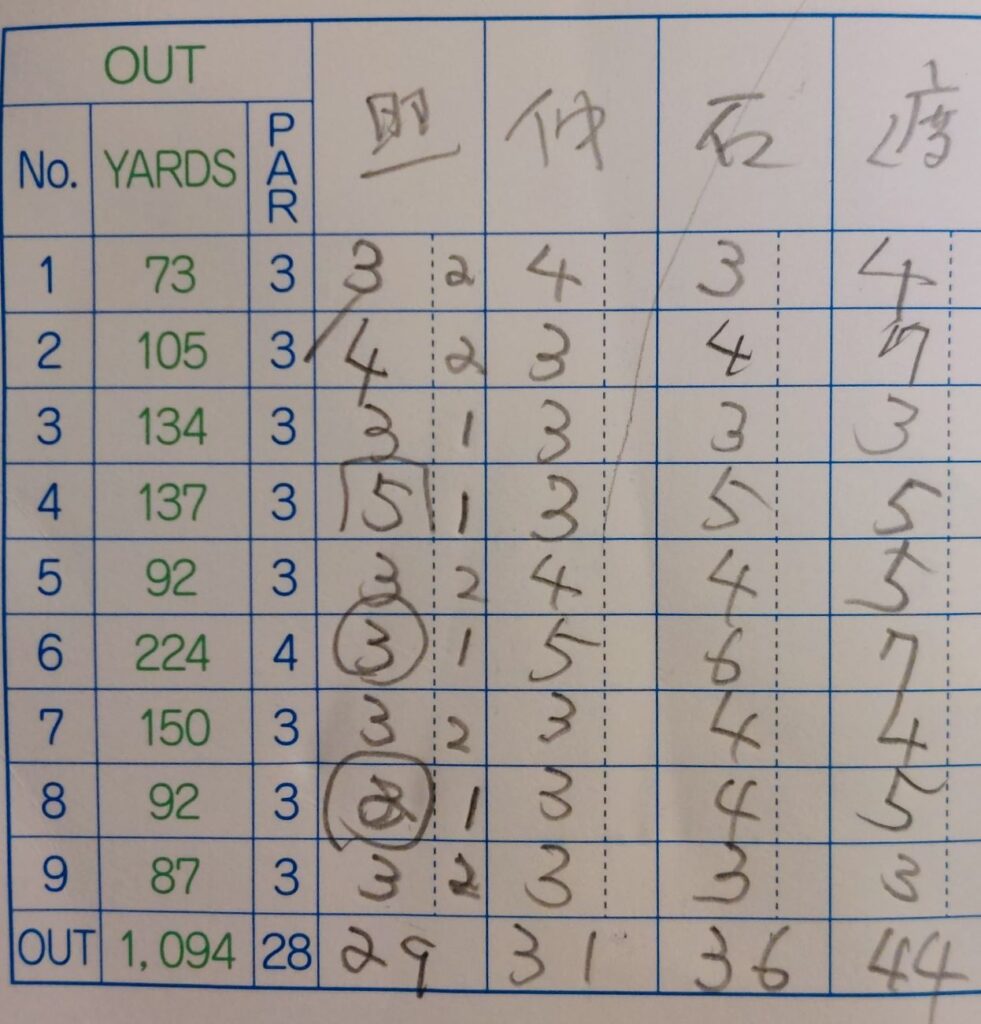 OUT
No. YARDS PAR 仲 石 渡
1 73 3 3 2 4 3 4
2 105 3 4 2 3 4 7
3 134 3 3 1 3 3 3
4 137 3 5 1 3 5 5
5 92 3 3 2 4 4 5
6 224 4 3 1 5 6 7
7 150 3 3 2 3 4 4
8 92 3 2 1 3 4 5
9 87 3 3 2 3 3 3
OUT 1,094 28 29 31 36 44